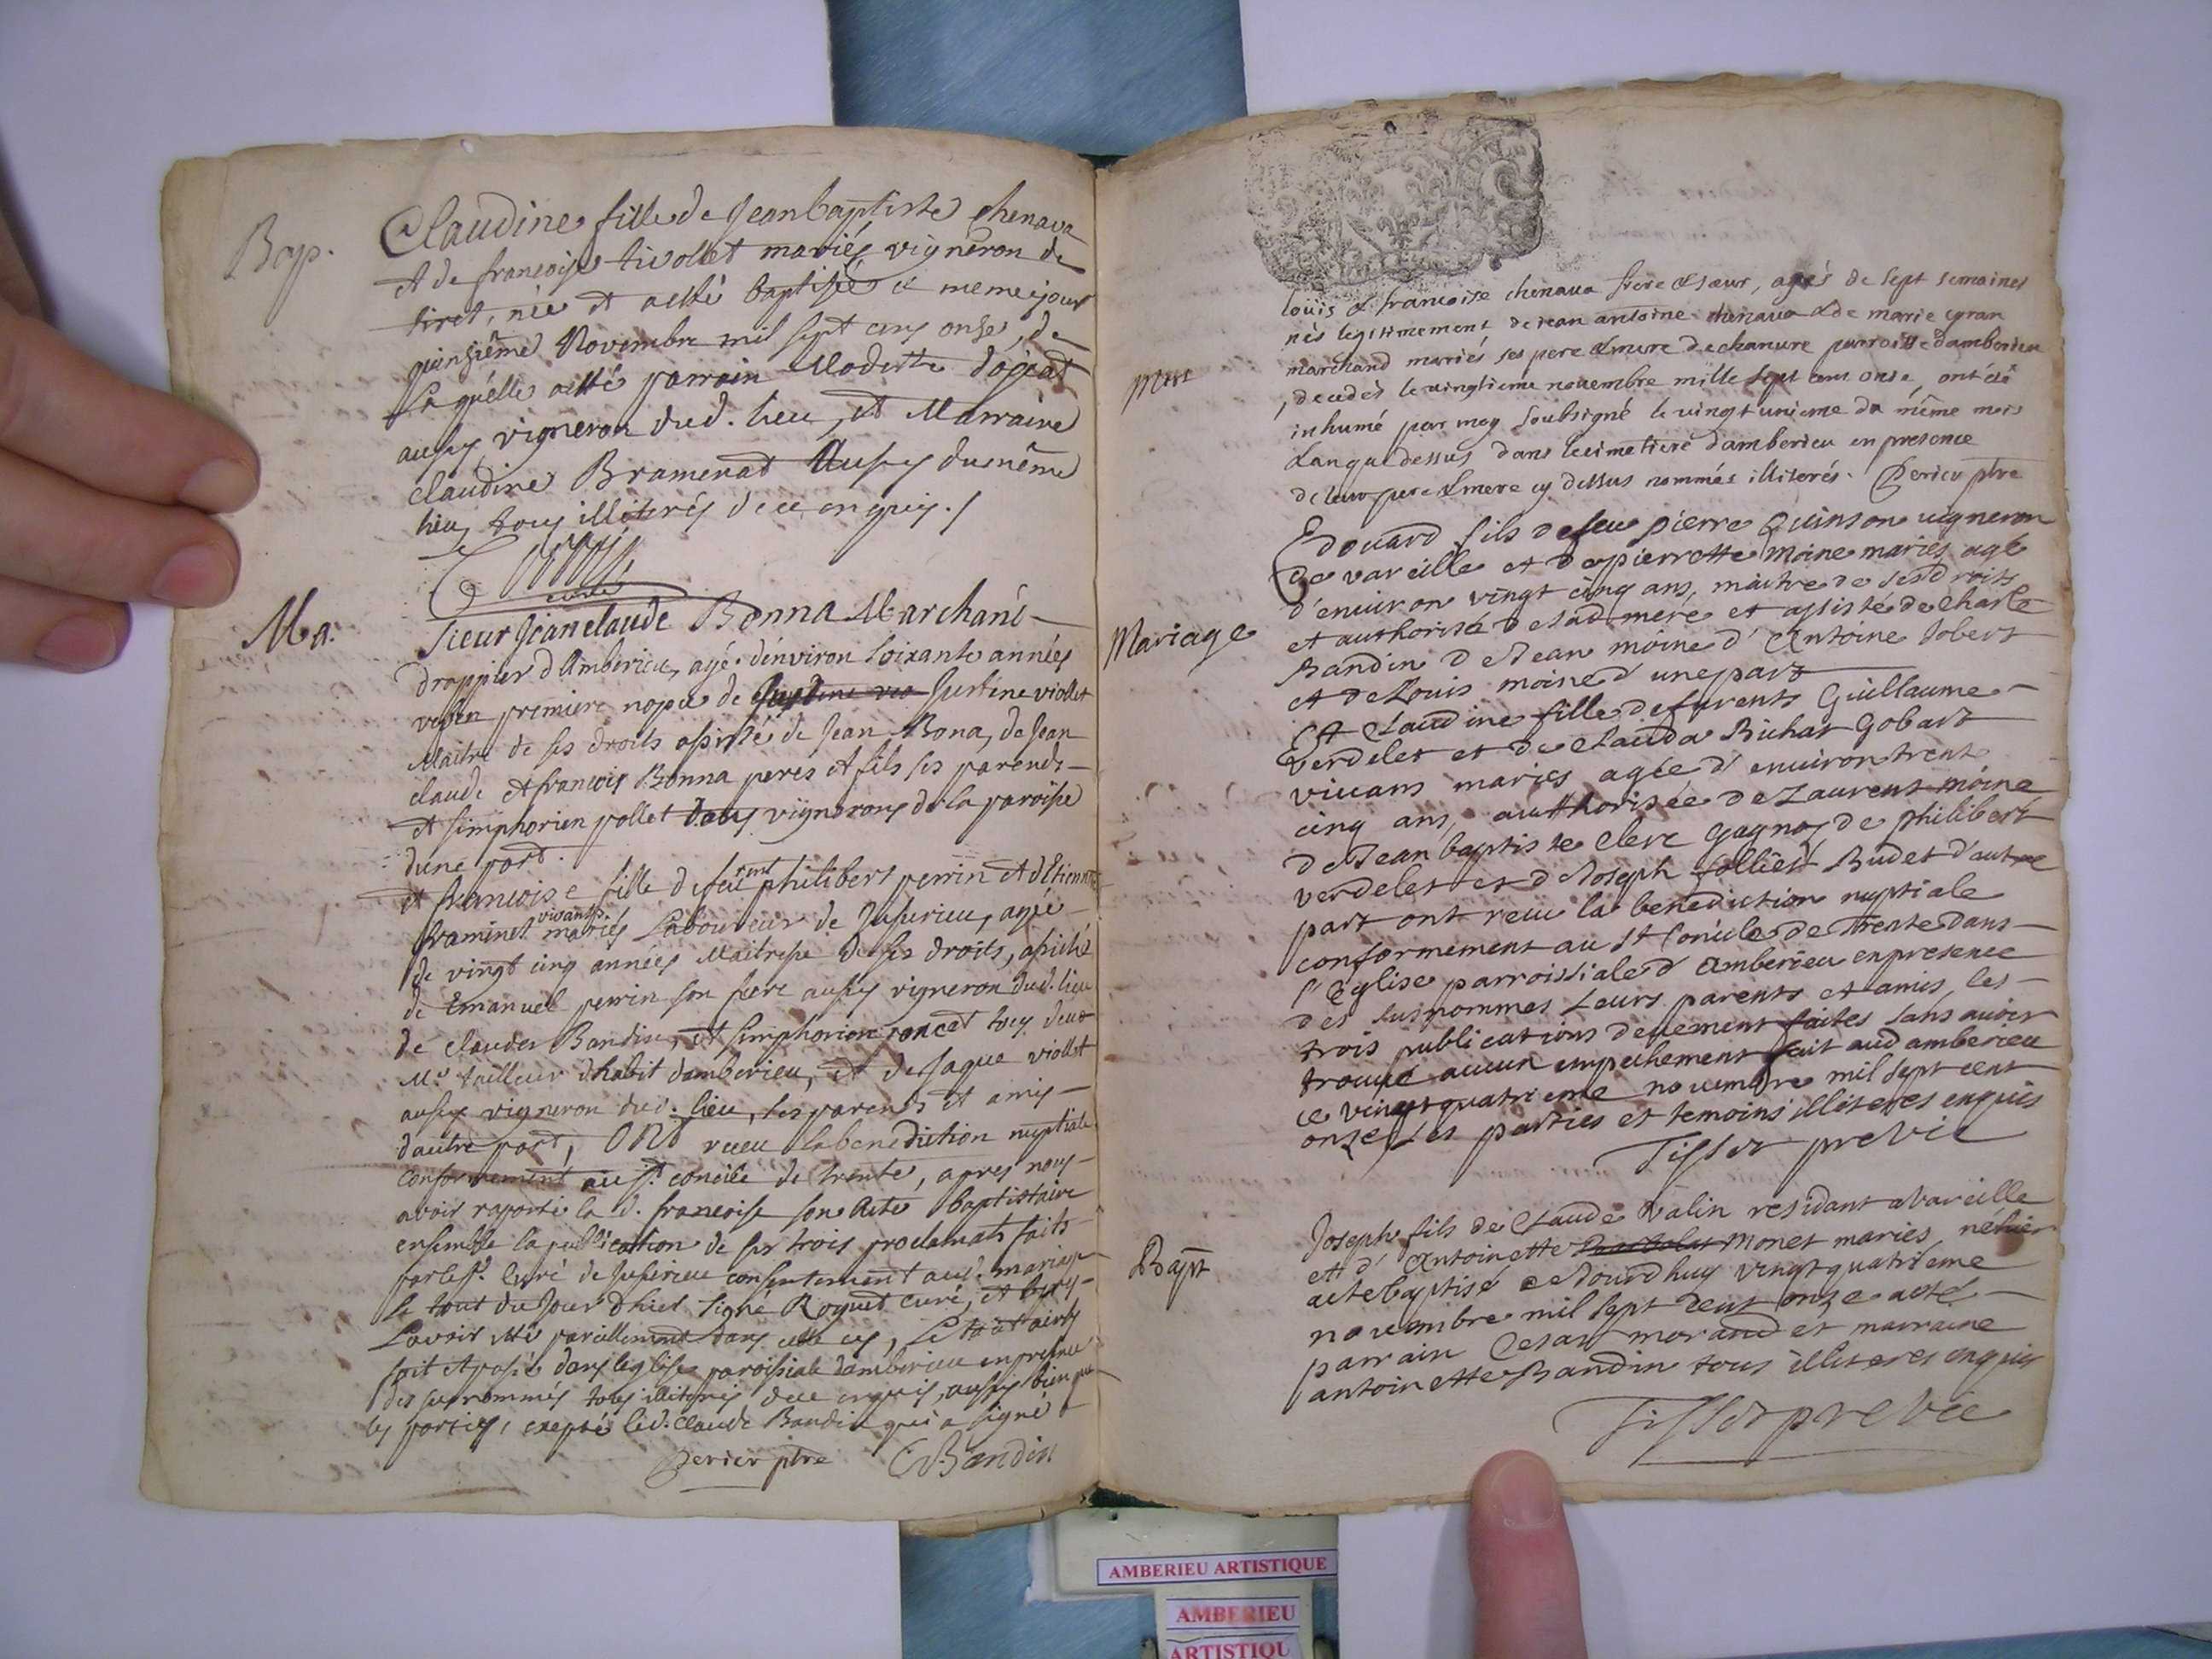 Bap.
Claudine fille de Jean baptiste chenava
et de francoise tivollet mariés vigneron de
tiret, née et a esté baptisée ce meme jour
quinsième Novembre mil sept cens onse, de
Laquelle a esté parrain Modeste
aussy vigneron dud. lieu, et Marraine
claudine Bramerat Aussy du même
lieu, tous illiterés de ce enquis./
curé
Ma.
Sieur Jean claude Bonna Marchand
drappier d'Amberieu, agé d'environ soixante années
vef en premiere nopce de Justine viollet
Maitre de ses droits assisté de Jean Bona, de Jean
claude et francois Bonna peres et fils ses parends
et simphorien pollet tous vignerons de la paroisse
d'une part.
et francoise fille de feu philibert perrin et d'Etiennette
framinet vivants mariés Laboureur de Jusurieu, agée
de vingt cinq années Maitresse de ses droits, assisté
de Emanuel perrin son frere aussy vigneron dud. lieu
de claude Bandin, et simphorien roncet tous deux
Me tailleur d'habit d'amberieu, et de Jaque viollet
aussy vigneron dud. lieu, ses parends et amis
d'autre part, ONt receu la benediction nuptiale
conformement au st. concile de trente, apres nous
avoir raporté la d. francoise son Acte baptistaire
ensemble la publication de ses trois proclamats faits
par le sr. Curé de Jusurieu consentement aud. mariage
le tout du Jour d'hier signé Roquet curé, et
L'avoir esté pareillement dans cette cy, le tout ainsy
fait et passé dans leglise paroissiale d'amberieu en presence
des surnommés tous illiterés de ce enquis, aussy bien que
les parties, excepté led. claude Bandin qui a signé
Perier ptre C Bandin
mort
loüis & francoise chenava frere & sœur, agés de sept semaines
nés legitimement de jean antoine chenava & de marie gran
marchand mariés ses pere & mere de chanure parroisse d'amberieu
, decedés le vingtieme novembre mille sept cent onse, ont été
inhumé par moy soubsigné le vingt unieme du même mois
& an que dessus dans le cimetiere d'amberieu en presence
de leur pere & mere cy dessus nommés illiterés. Perier ptre
Mariage
Edouard fils de feu pierre Quinson vigneron
de vareille et de pierrette moine mariés agé
d'environ vingt cinq ans, maitre de ses droits
et authorisé de sad mere et assisté de Charle
Bandin de Jean moine d'Antoine Jobert
et de Louis moine d'une part
Et Claudine fille de furents Guillaume
Verdelet et de Clauda Richat Gobart
vivans mariés agée d'environ trent
cinq ans, authorisée de Laurent moine
de Jean baptiste Clerc gagnoz de philibert
verdelet et de Joseph follliet Budet d'autre
part ont receu la benediction nuptiale
conformement au st Concile de Trente dans
l'Eglise parroissiale d'Amberieu en presence
des susnommes leurs parents et amis, les
trois publications deuement faites sans avoir
trouvé aucun empechement fait aud amberieu
ce vingt quatrieme novembre mil sept cent
onze Les parties et temoins illiteres enquis
Tissot pre vic
Bapt
Joseph fils de Claude Valin residant a Vareille
et d'Antoinette Monet mariés né hier
a ete baptisé ce Jourd'huy vingt quatrieme
novembre mil sept cent onze a eté
parrain Cesar morand et marraine
antoinette Bandin tous illiteres enquis
Tissot pre vic
AMBERIEU ARTISTIQUE
AMBERIEU
ARTISTIQU